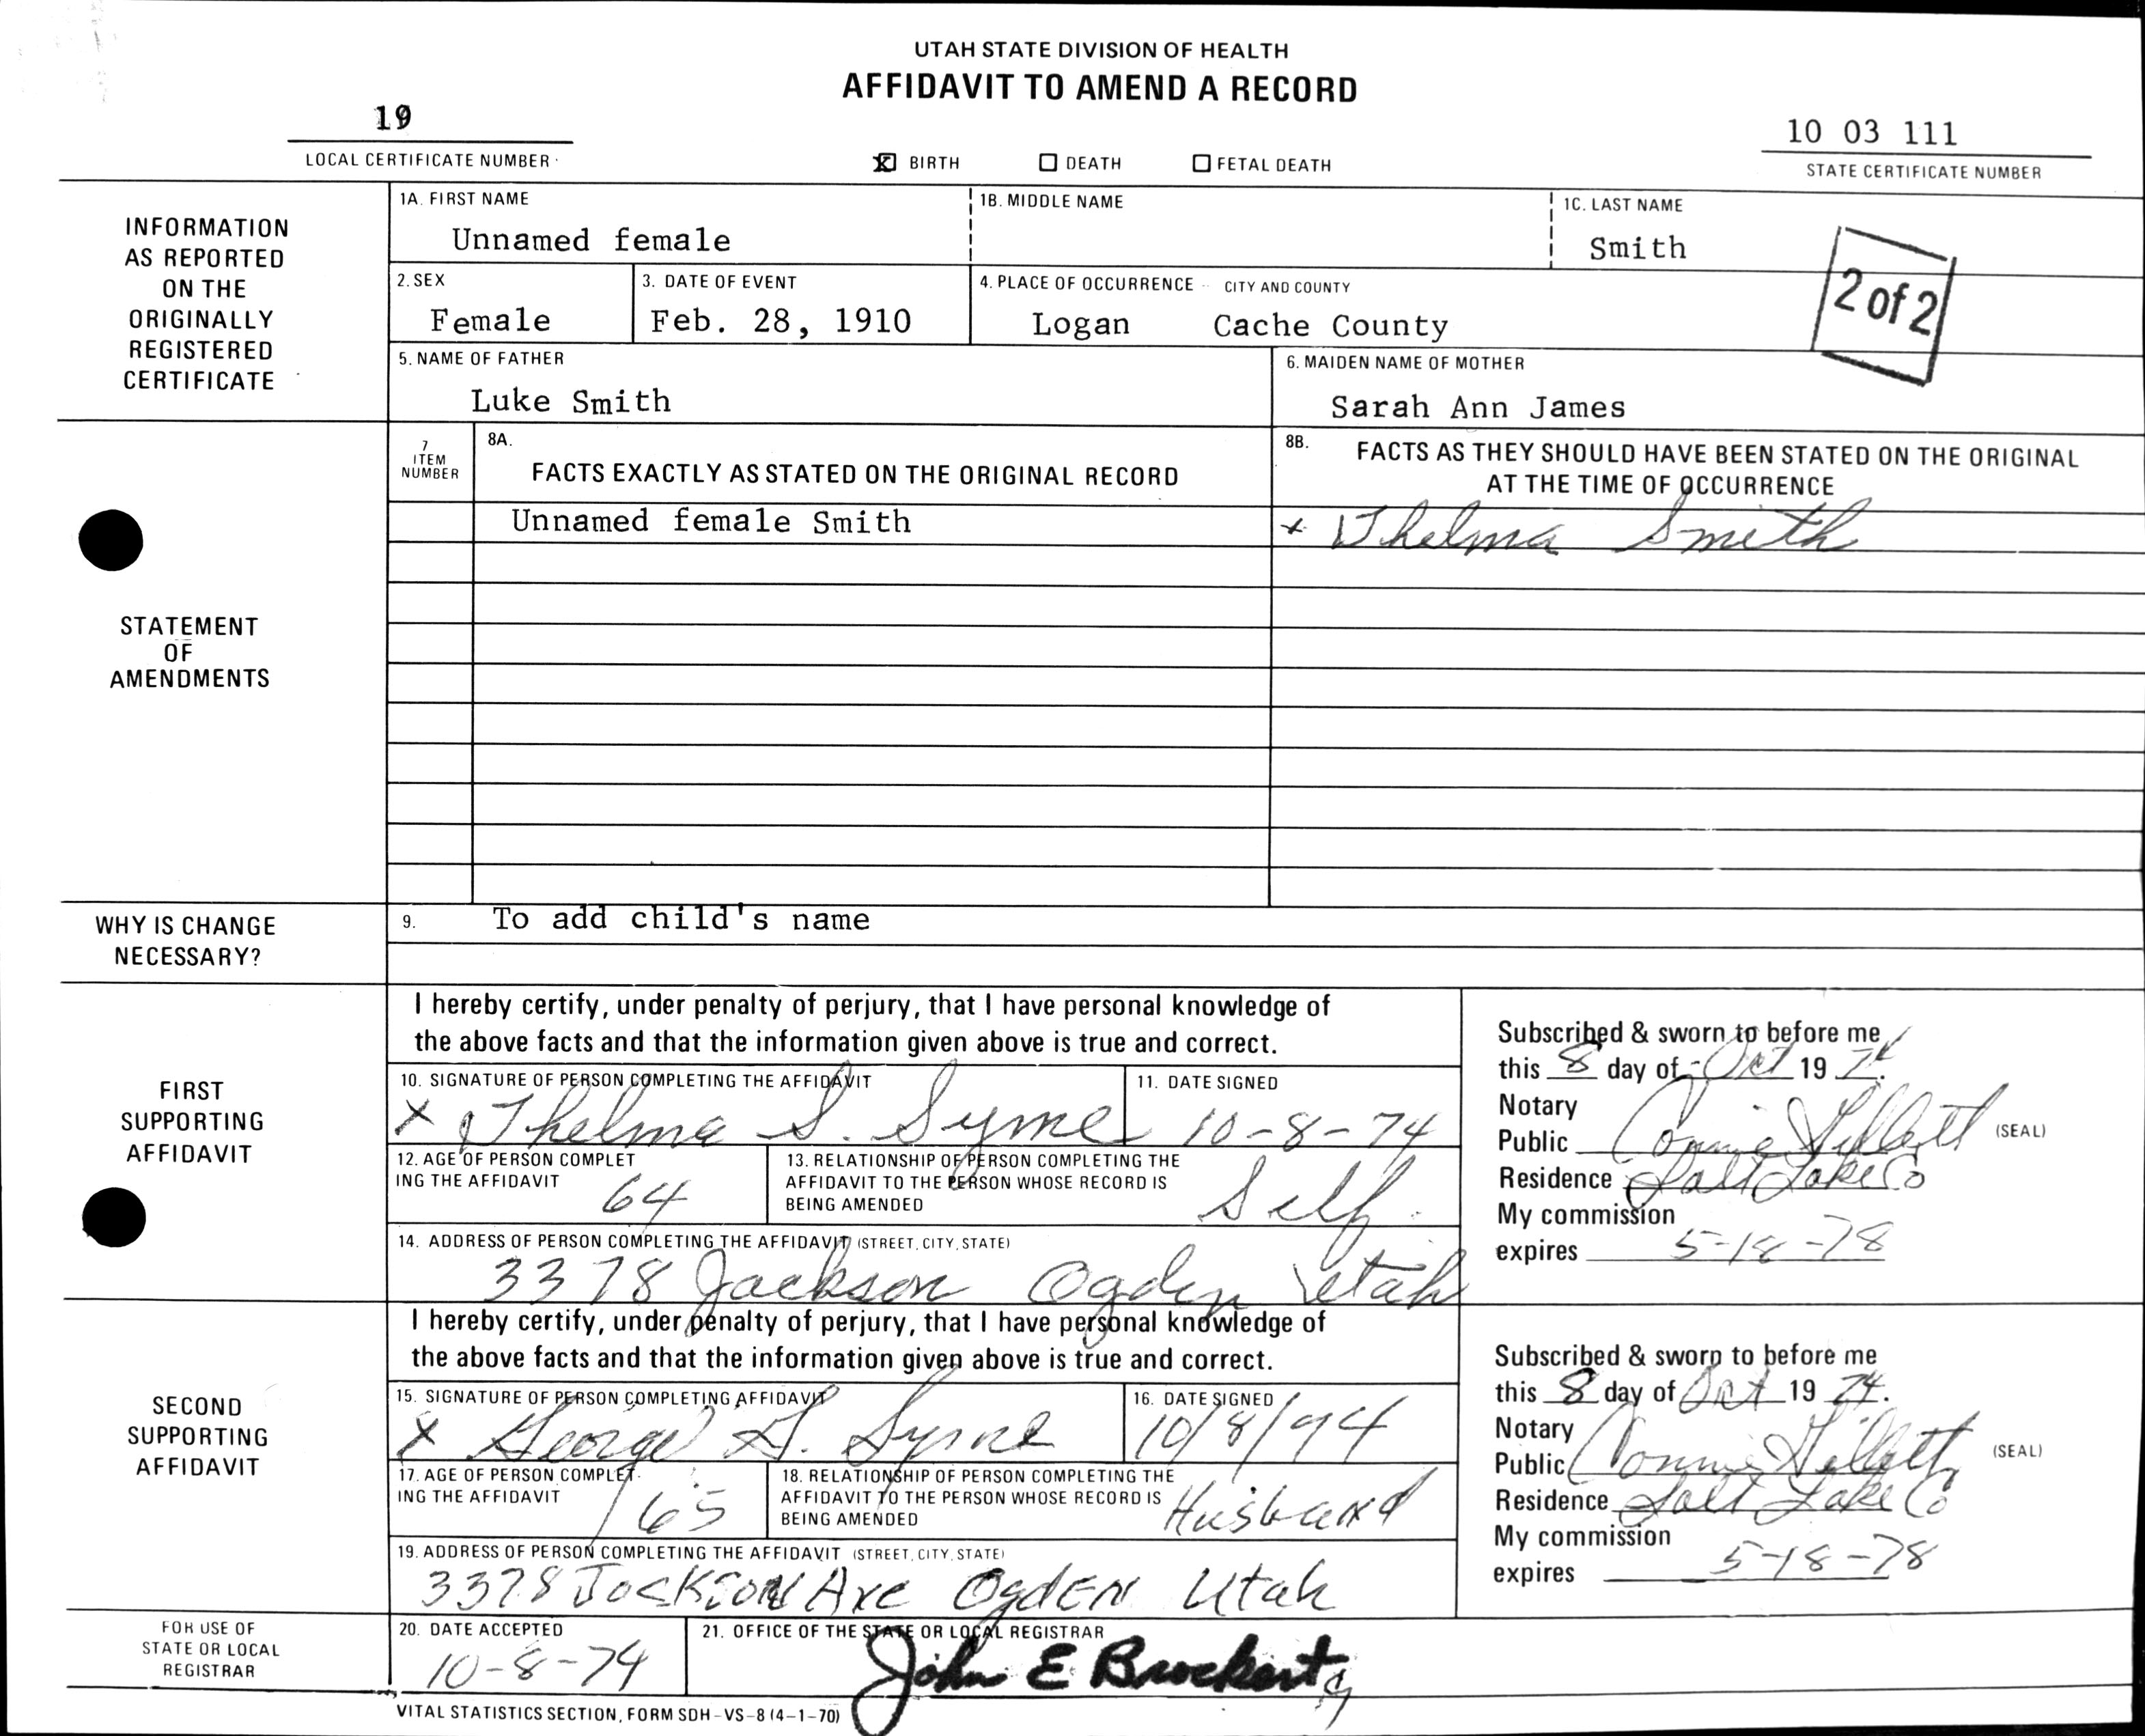 UTAH STATE DIVISION OF HEALTH
AFFIDAVIT TO AMEND A RECORD
19
LOCAL CERTIFICATE NUMBER
X BIRTH DEATH FETAL DEATH
10 03 111
STATE CERTIFICATE NUMBER
INFORMATION
AS REPORTED
ON THE
ORIGINALLY
REGISTERED
CERTIFICATE
1A. FIRST NAME
Unnamed female
1B. MIDDLE NAME
1C. LAST NAME
Smith
2 of 2
2. SEX
Female
3. DATE OF EVENT
Feb. 28, 1910
4. PLACE OF OCCURRENCE CITY AND COUNTY
Logan Cache County
5. NAME OF FATHER
Luke Smith
6. MAIDEN NAME OF MOTHER
Sarah Ann James
STATEMENT
OF
AMENDMENTS
7
ITEM
NUMBER
8A.
FACTS EXACTLY AS STATED ON THE ORIGINAL RECORD
8B. FACTS AS THEY SHOULD HAVE BEEN STATED ON THE ORIGINAL
AT THE TIME OF OCCURRENCE
Unnamed female Smith
x Thelma Smith
WHY IS CHANGE
NECESSARY?
9. To add child's name
FIRST
SUPPORTING
AFFIDAVIT
I hereby certify, under penalty of perjury, that I have personal knowledge of
the above facts and that the information given above is true and correct.
10. SIGNATURE OF PERSON COMPLETING THE AFFIDAVIT
X Thelma S. Syme
11. DATE SIGNED
10-8-74
12. AGE OF PERSON COMPLET
ING THE AFFIDAVIT
64
13. RELATIONSHIP OF PERSON COMPLETING THE
AFFIDAVIT TO THE PERSON WHOSE RECORD IS
BEING AMENDED
Self
14. ADDRESS OF PERSON COMPLETING THE AFFIDAVIT (STREET, CITY, STATE)
3378 Jackson Ogden Utah
Subscribed & sworn to before me
this 8 day of Oct 19 74.
Notary
Public Connie Gillett (SEAL)
Residence Salt Lake Co
My commission
expires 5-18-78
SECOND
SUPPORTING
AFFIDAVIT
I hereby certify, under penalty of perjury, that I have personal knowledge of
the above facts and that the information given above is true and correct.
15. SIGNATURE OF PERSON COMPLETING AFFIDAVIT
X George Syme
16. DATE SIGNED
10/8/94
17. AGE OF PERSON COMPLET
ING THE AFFIDAVIT
65
18. RELATIONSHIP OF PERSON COMPLETING THE
AFFIDAVIT TO THE PERSON WHOSE RECORD IS
BEING AMENDED
Husband
19. ADDRESS OF PERSON COMPLETING THE AFFIDAVIT (STREET, CITY, STATE)
3378 Jackson Ave Ogden Utah
Subscribed & sworn to before me
this 8 day of Oct 19 74.
Notary
Public Connie Gillett (SEAL)
Residence Salt Lake Co
My commission
expires 5-18-78
FOR USE OF
STATE OR LOCAL
REGISTRAR
20. DATE ACCEPTED
10-8-74
21. OFFICE OF THE STATE OR LOCAL REGISTRAR
John E Brockert
VITAL STATISTICS SECTION, FORM SDH-VS-8 (4-1-70)